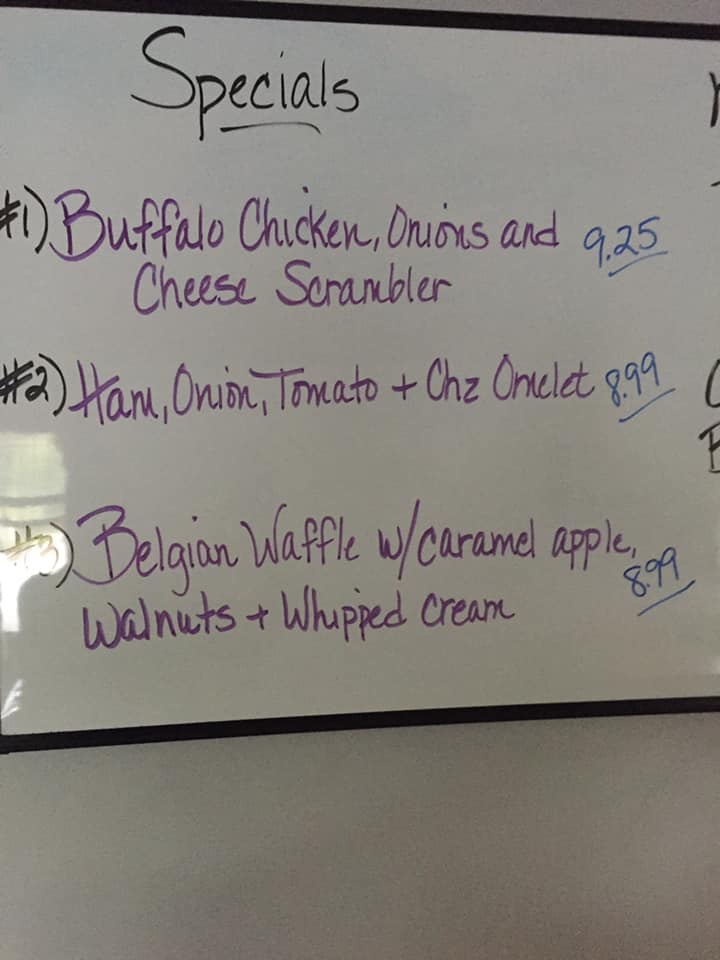 Specials
#1) Buffalo Chicken, Onions and 9.25
Cheese Scrambler
#2) Ham, Onion, Tomato + Chz Omelet 8.99
#3) Belgian Waffle w/caramel apple, 8.99
Walnuts + Whipped Cream